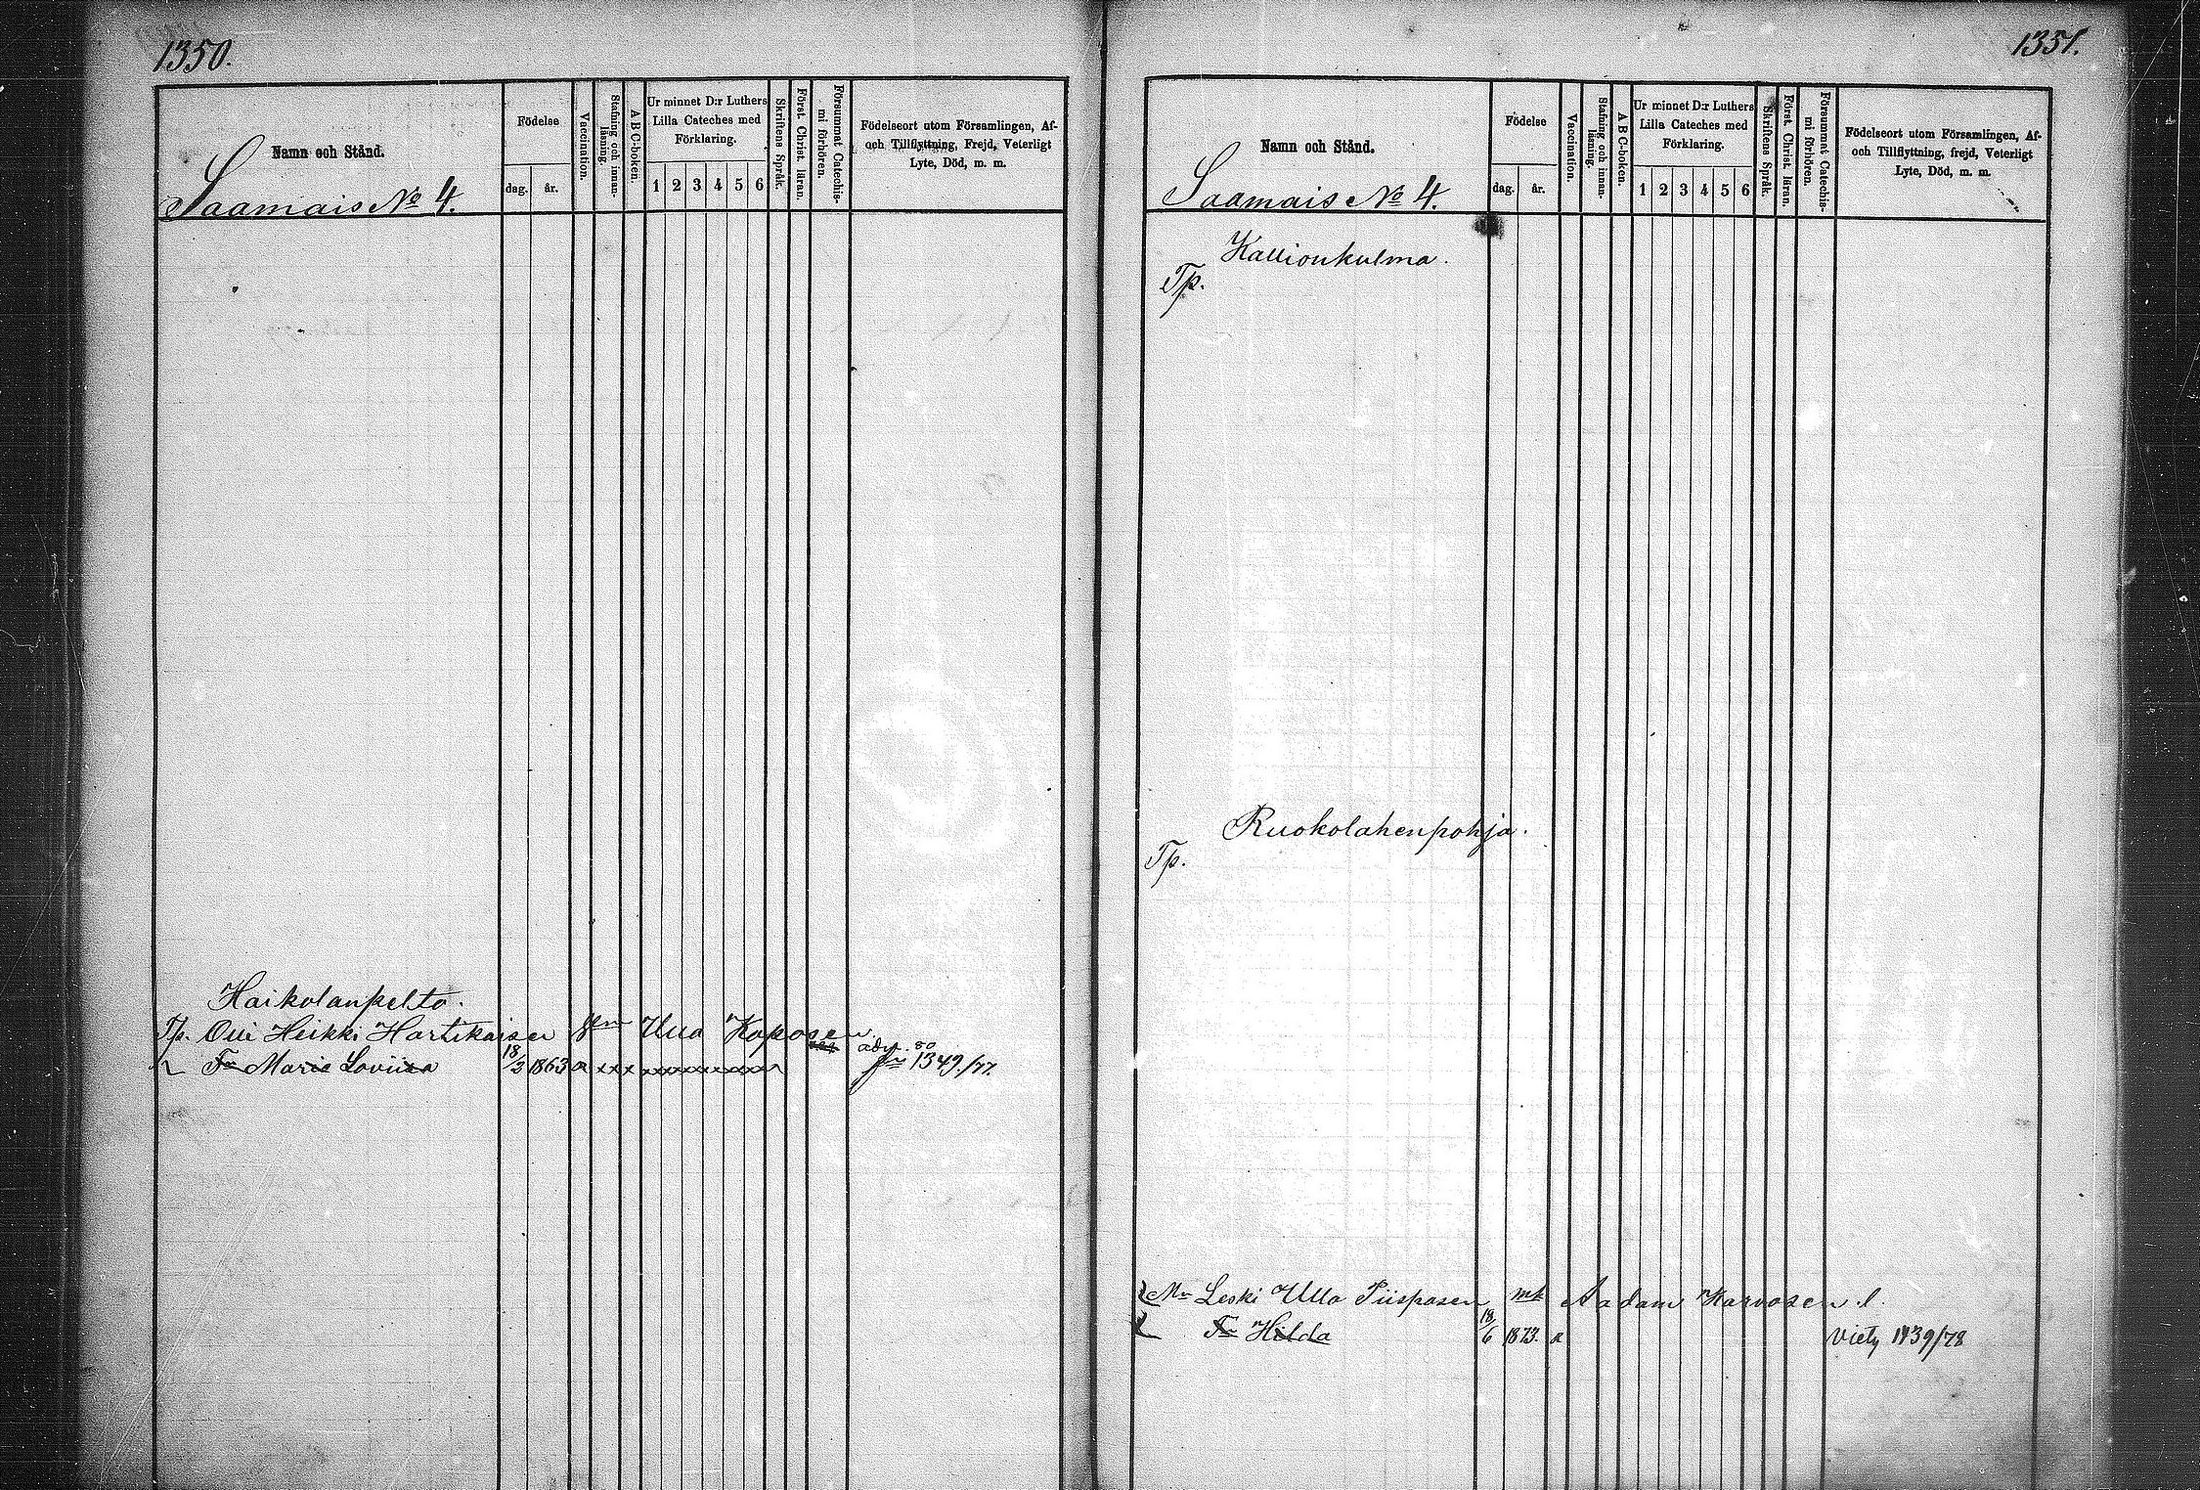 1350.
Namn och Stånd.
Saamais № 4.
Födelse
dag. år.
Vaccination.
Stafning och innan-
läsning.
A B C-boken.
Ur minnet D:r Luthers
Lilla Cateches med
Förklaring.
1 2 3 4 5 6
Skriftens Språk.
Först. Christ. läran.
Försummat Catechis-
mi förhören.
Födelseort utom Församlingen, Af-
och Tillflyttning, Frejd, Veterligt
Lyte, Död, m. m.
Haikolanpelto.
Tp. Ovi Heikki Hartikaisen Ulla Koposen
Fr Marie Loviisa 18/2 1863 1349/77.
1351.
Namn och Stånd.
Saamais № 4.
Födelse
dag. år.
Vaccination.
Stafning och innan-
läsning.
A B C-boken.
Ur minnet D:r Luthers
Lilla Cateches med
Förklaring.
1 2 3 4 5 6
Skriftens Språk.
Först. Christ. läran.
Försummat Catechis-
mi förhören.
Födelseort utom Församlingen, Af-
och Tillflyttning, frejd, Veterligt
Lyte, Död, m. m.
Kallionkulma.
Tp.
Ruokolahenpohja.
Tp.
Leski Ulla Piisposen mk Aadam Karvosen l.
Fr Hilda 18/6 1873. Viety 1139/78